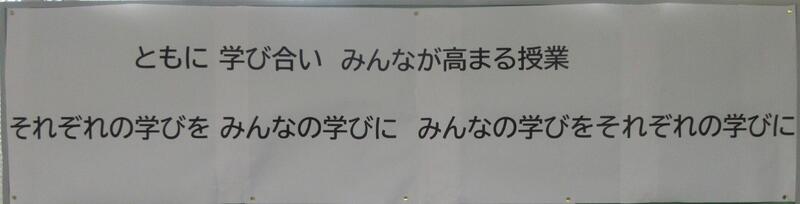 ともに 学び合い みんなが高まる授業
それぞれの学びを みんなの学びに みんなの学びをそれぞれの学びに